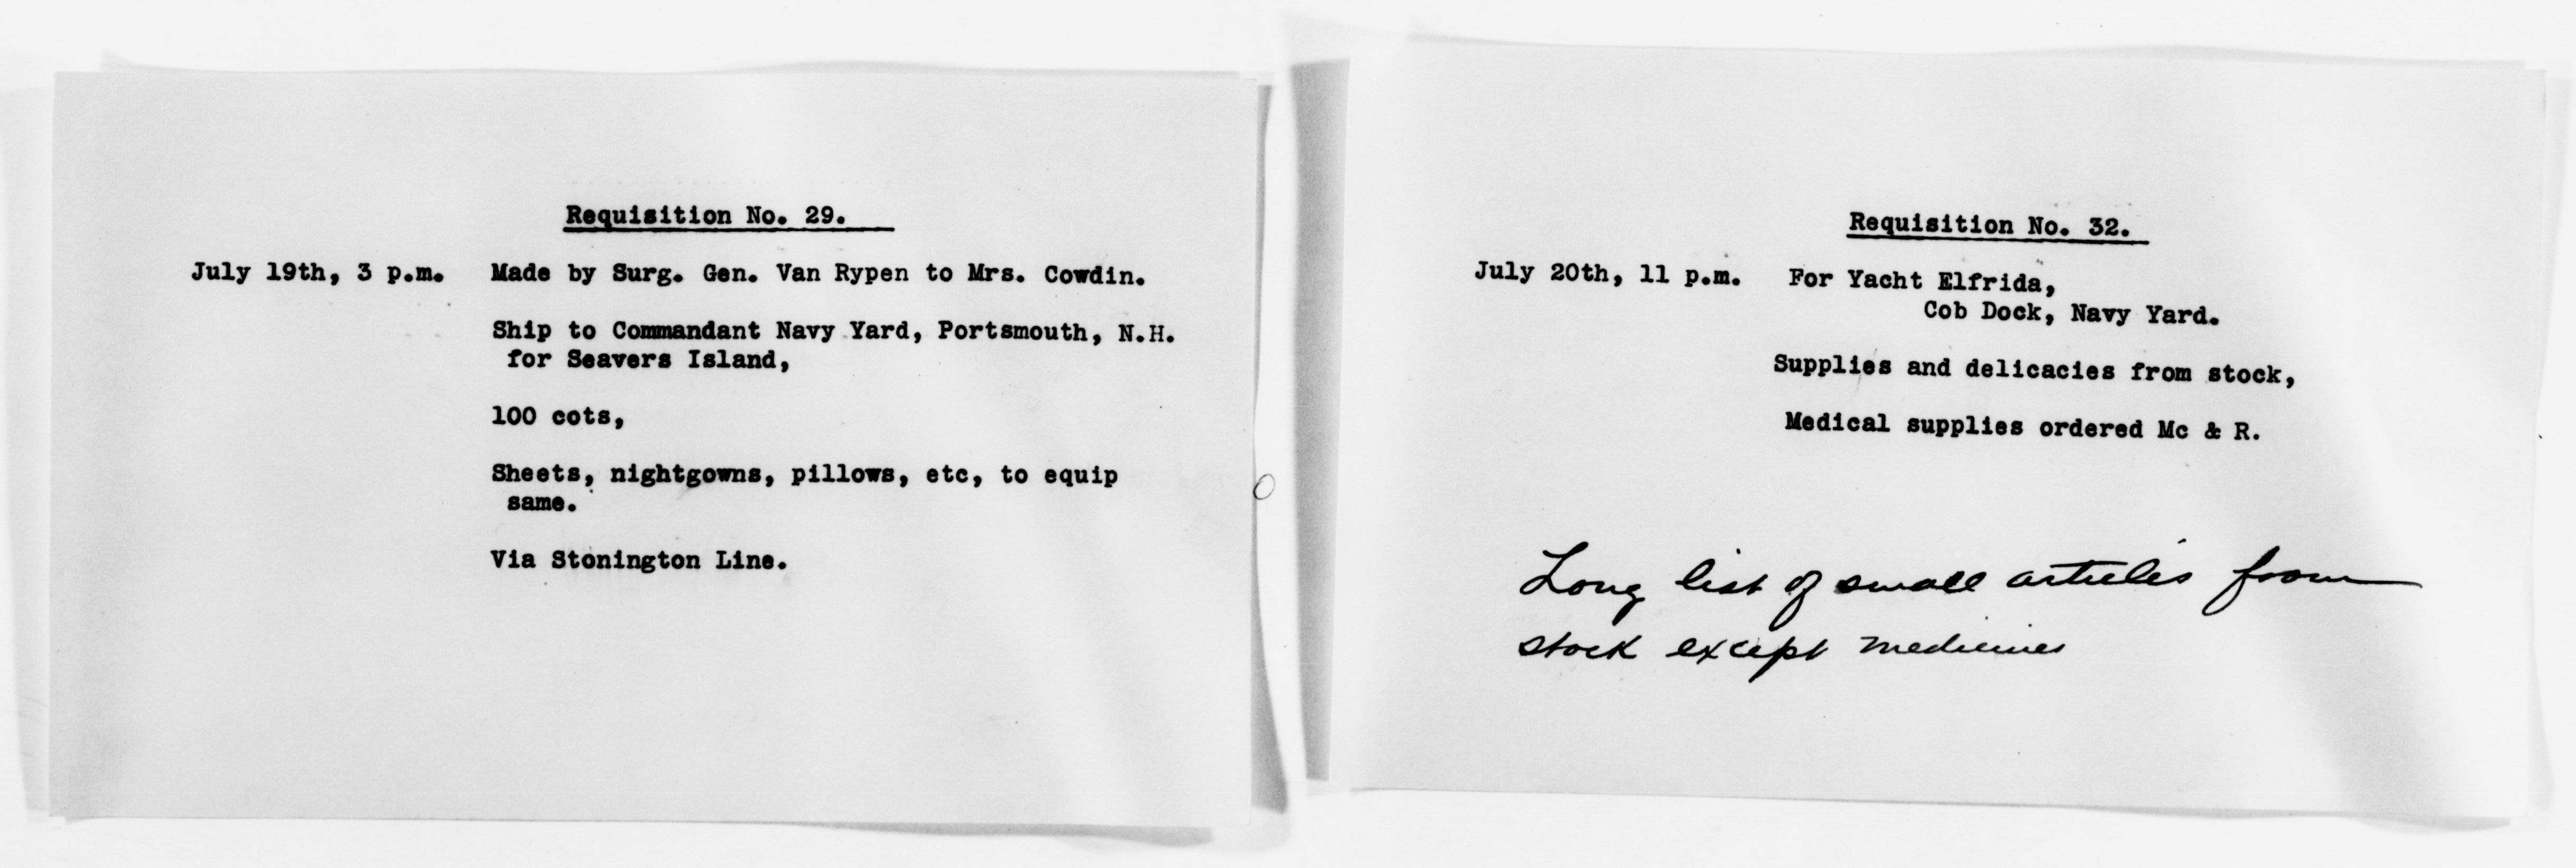 Requisition No. 29.
July 19th, 3 p.m. Made by Surg. Gen. Van Rypen to Mrs. Cowdin.
Ship to Commandant Navy Yard, Portsmouth, N.H.
for Seavers Island,
100 cots,
Sheets, nightgowns, pillows, etc, to equip
same.
Via Stonington Line.
Requisition No. 32.
July 20th, 11 p.m. For Yacht Elfrida,
Cob Dock, Navy Yard.
Supplies and delicacies from stock,
Medical supplies ordered Mc & R.
Long list of small articles from
stock except medicines